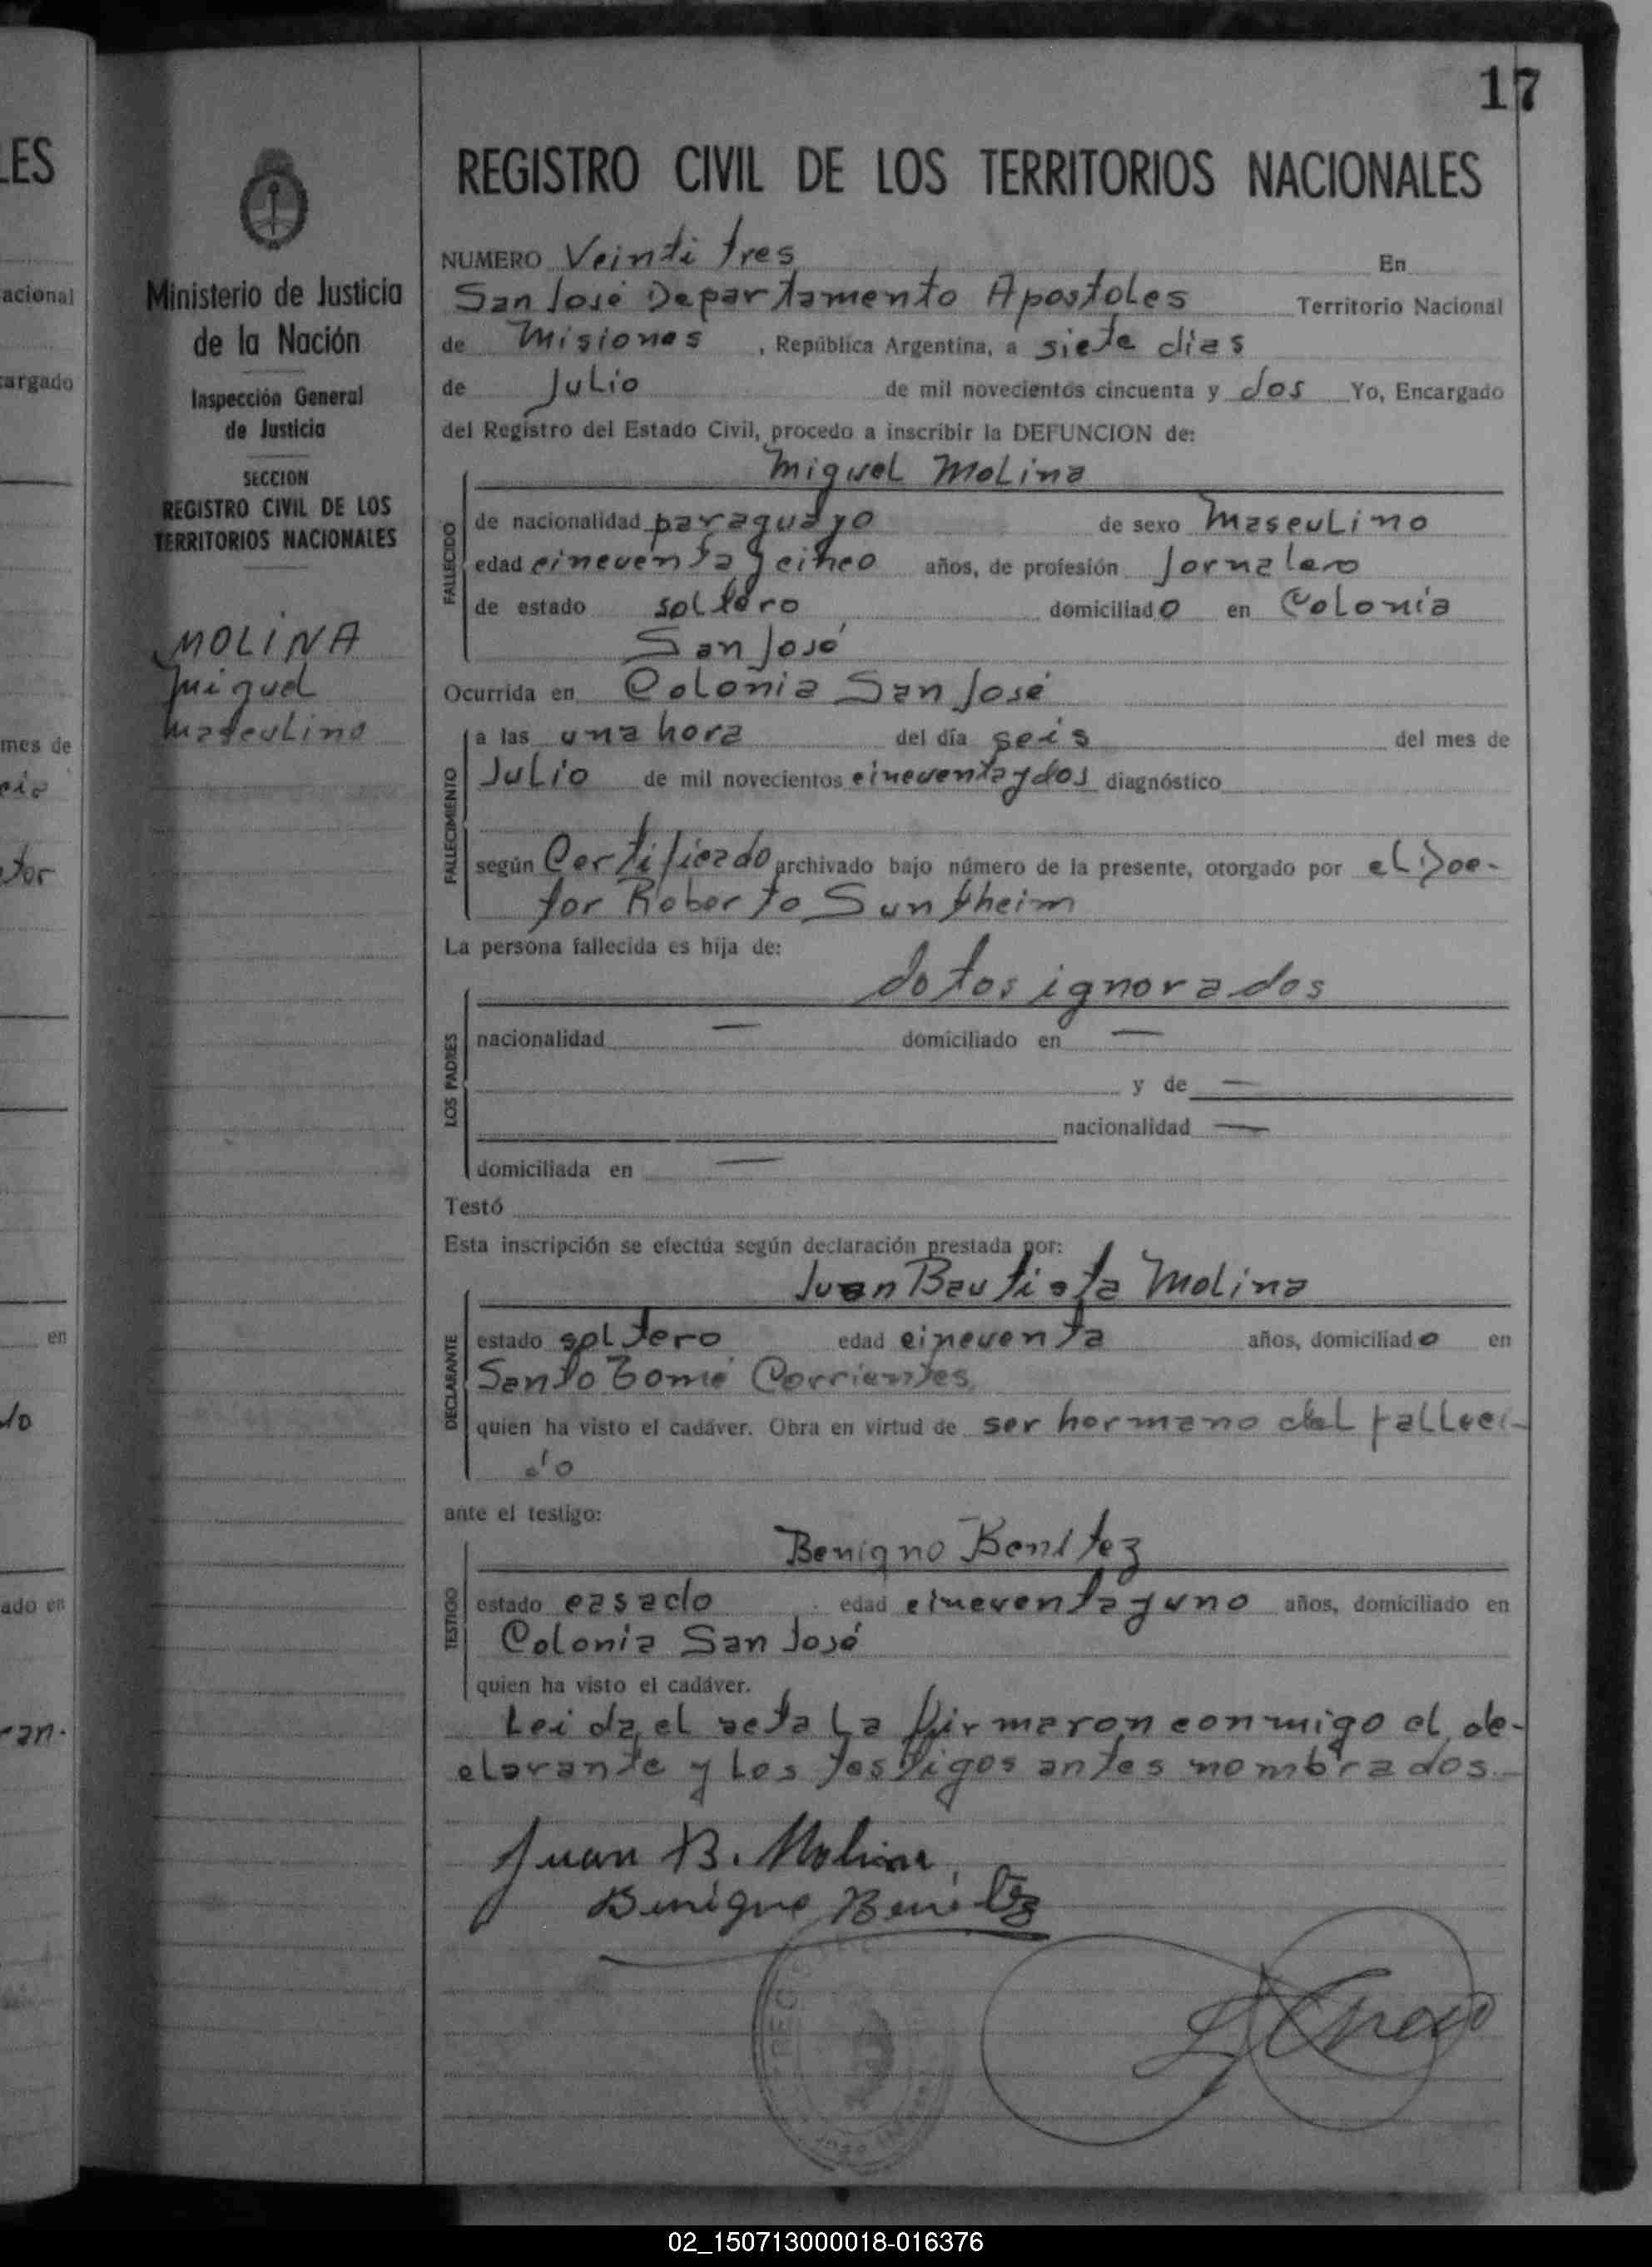 17
REGISTRO CIVIL DE LOS TERRITORIOS NACIONALES
Ministerio de Justicia
de la Nación
Inspección General
de Justicia
SECCION
REGISTRO CIVIL DE LOS
TERRITORIOS NACIONALES
MOLINA
Miguel
Masculino
NUMERO Veinti tres En
San José Departamento Apostoles Territorio Nacional
de Misiones, República Argentina, a siete dias
de Julio de mil novecientos cincuenta y dos Yo, Encargado
del Registro del Estado Civil, procedo a inscribir la DEFUNCION de:
Miguel Molina
FALLECIDO
de nacionalidad paraguayo de sexo Masculino
edad cincuenta y cinco años, de profesión Jornalero
de estado soltero domiciliado en Colonia
San José
Ocurrida en Colonia San José
FALLECIMIENTO
a las una hora del día seis del mes de
Julio de mil novecientos cincuenta y dos diagnóstico
según Certificado archivado bajo número de la presente, otorgado por el Doc-
tor Roberto
La persona fallecida es hija de:
LOS PADRES
datos ignorados
nacionalidad — domiciliado en —
y de —
nacionalidad —
domiciliada en —
Testó
Esta inscripción se efectúa según declaración prestada por:
Juan Bautista Molina
DECLARANTE
estado soltero edad cincuenta años, domiciliado en
Santo Tomé Corrientes
quien ha visto el cadáver. Obra en virtud de ser hermano del falleci-
do
ante el testigo:
Benigno Benitez
TESTIGO
estado casado edad cincuenta y uno años, domiciliado en
Colonia San José
quien ha visto el cadáver.
Leida el acta la firmaron conmigo el de-
clarante y los testigos antes nombrados.
Juan B. Molina
Benigno Benitez
02_150713000018-016376